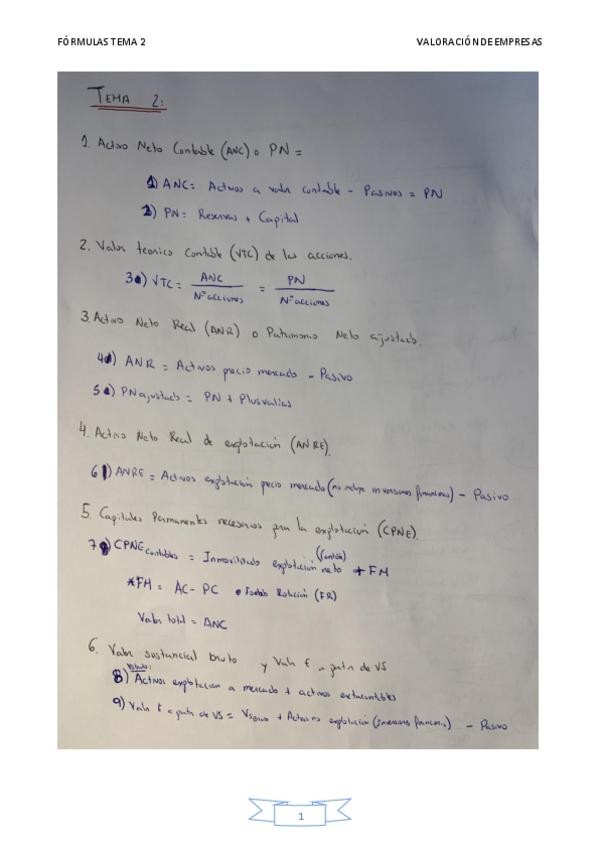 FÓRMULAS TEMA 2 VALORACIÓN DE EMPRESAS
TEMA 2:
1. Activo Neto Contable (ANC) o PN =
1) ANC = Activos a valor contable - Pasivos = PN
2) PN = Reservas + Capital
2. Valor teorico Contable (VTC) de las acciones.
3) VTC = ANC / Nº acciones = PN / Nº acciones
3. Activo Neto Real (ANR) o Patrimonio Neto ajustado.
4) ANR = Activos precio mercado - Pasivo
5) PN ajustado = PN + Plusvalías
4. Activo Neto Real de explotación (ANRE).
6) ANRE = Activos explotación precio mercado (no incluye inversiones financieras) - Pasivo
5. Capitales Permanentes necesarios para la explotación (CPNE).
7) CPNE contables = Inmovilizado explotación neto (contable) + FM
*FM = AC - PC o Fondo Rotación (FR)
Valor total = ANC
6. Valor sustancial bruto y Valor € a partir de VS
8) Activos explotacion a mercado + activos extracontables
9) Valor € a partir de VS = VSbruto + Activos no explotación (inversiones financieras) - Pasivo
1